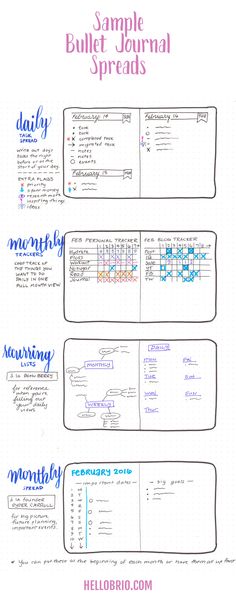 Sample
Bullet Journal
Spreads
daily
TASK
SPREAD
February 14
February 16
task
task
completed task
migrated task
notes
notes
events
February 15
write out days
tasks the night
before or at the
start of your day
EXTRA FLAGS
priority
research more
inspiring things
ideas
monthly
TRACKERS
FEB PERSONAL TRACKER
FEB BLOG TRACKER
Hydrate
Floss
Workout
Read
Journal
keep track of
the things you
want to do
daily in one
full month view
recurring
LISTS
MONTHLY
WEEKLY
DAILY
MON
TUE
WED
THUR
for reference
when you're
filling out
your daily
views
monthly
SPREAD
FEBRUARY 2016
important dates
big goals
à la founder
RYDER CARROLL
for big picture,
future planning,
important events.
* You can put these at the beginning of each month or have them up front
HELLOBRIO.COM